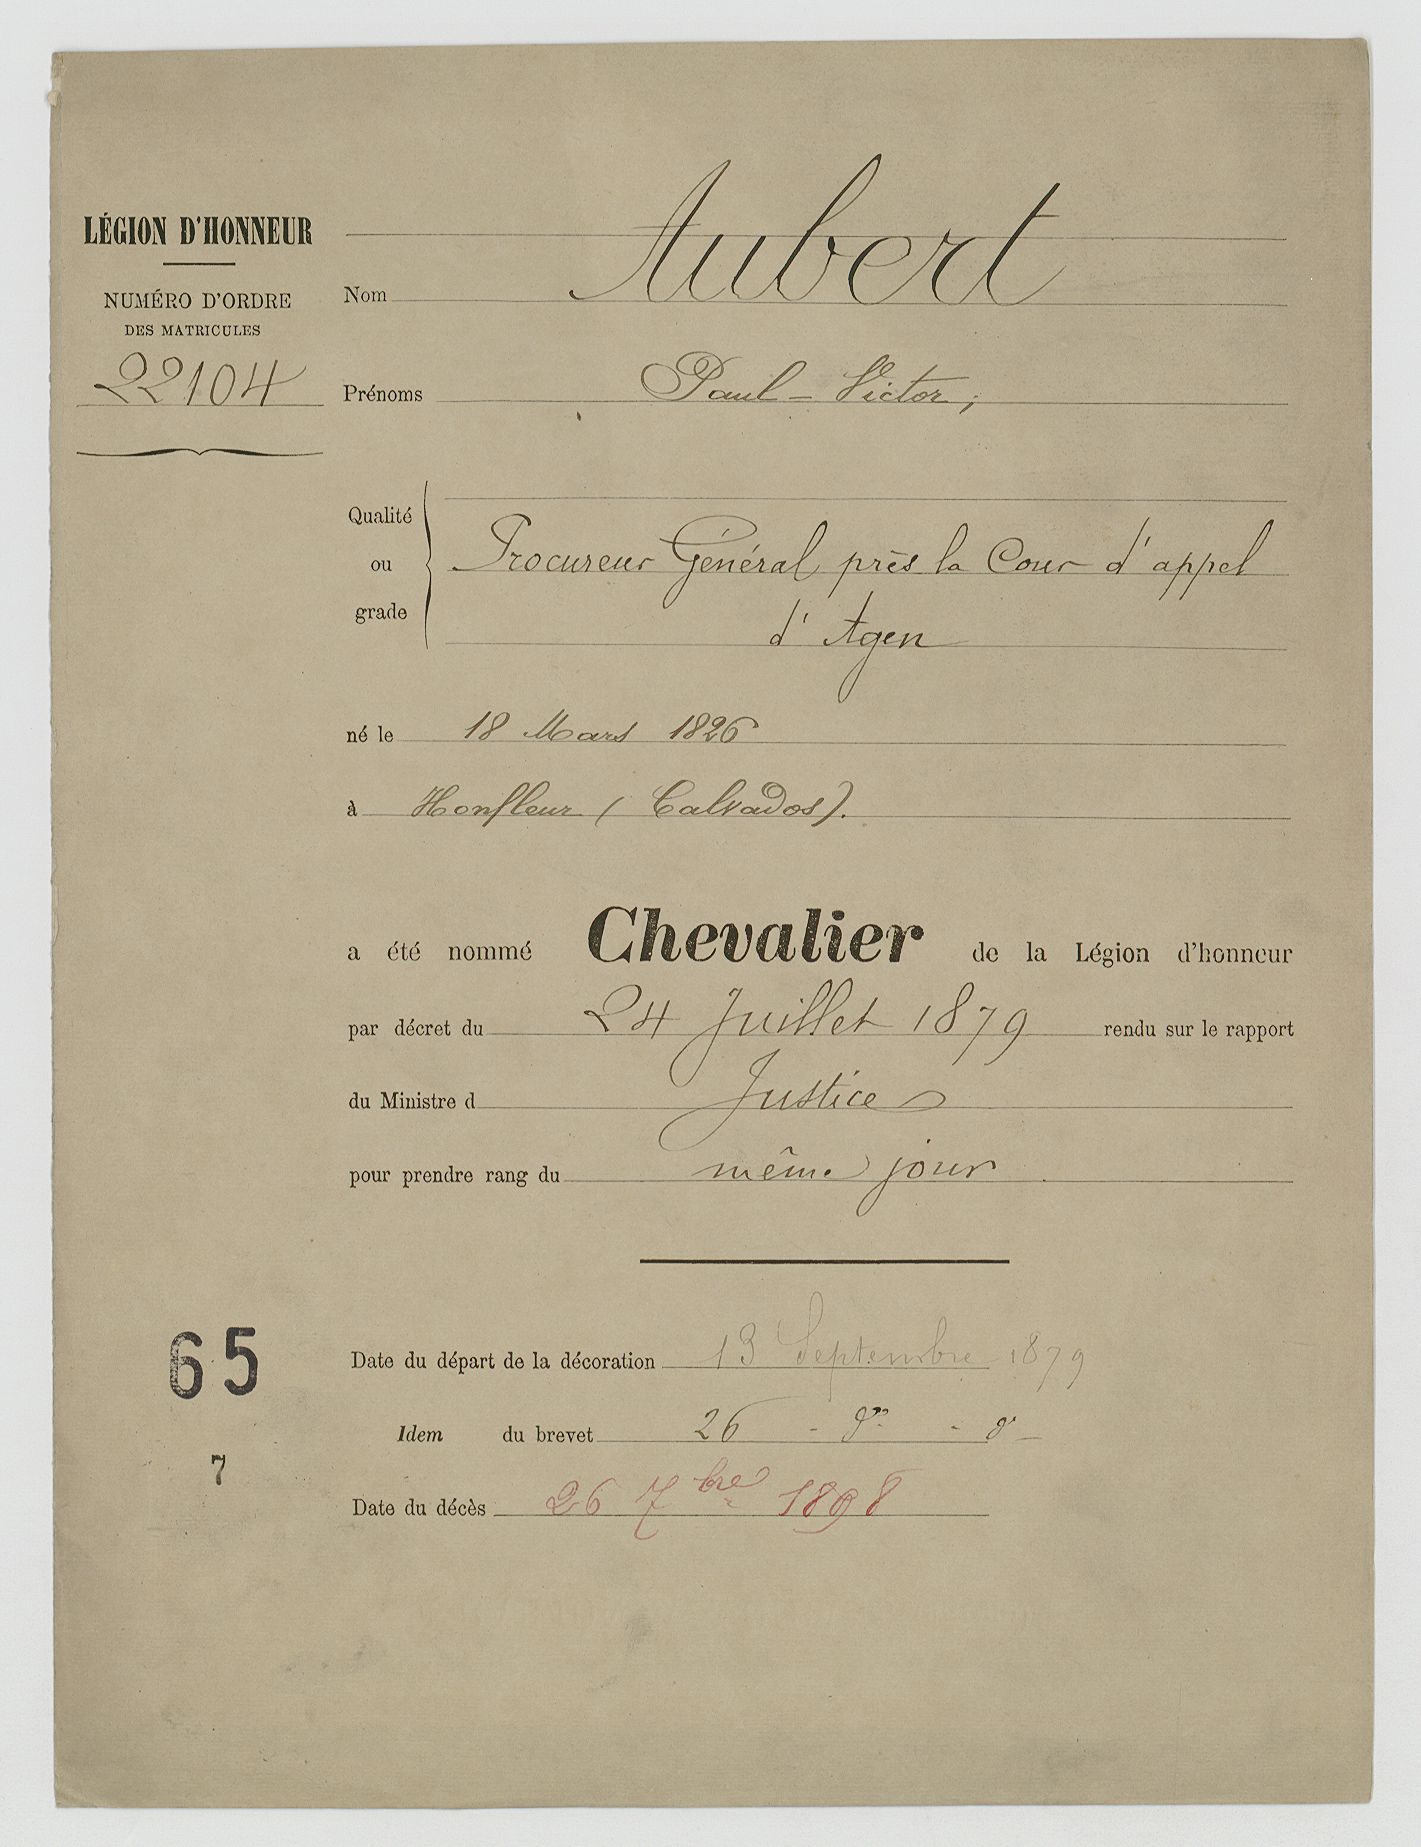 LÉGION D'HONNEUR
NUMÉRO D'ORDRE
DES MATRICULES
22104
Nom Aubert
Prénoms Paul-Victor,
Qualité
ou
grade
Procureur Général près la Cour d'appel
d'Agen
né le 18 Mars 1826
à Honfleur (Calvados).
a été nommé Chevalier de la Légion d'honneur
par décret du 24 Juillet 1879 rendu sur le rapport
du Ministre d Justice
pour prendre rang du même jour
65
7
Date du départ de la décoration 13 Septembre 1879
Idem du brevet 26 - do - do -
Date du décès 26 7bre 1898